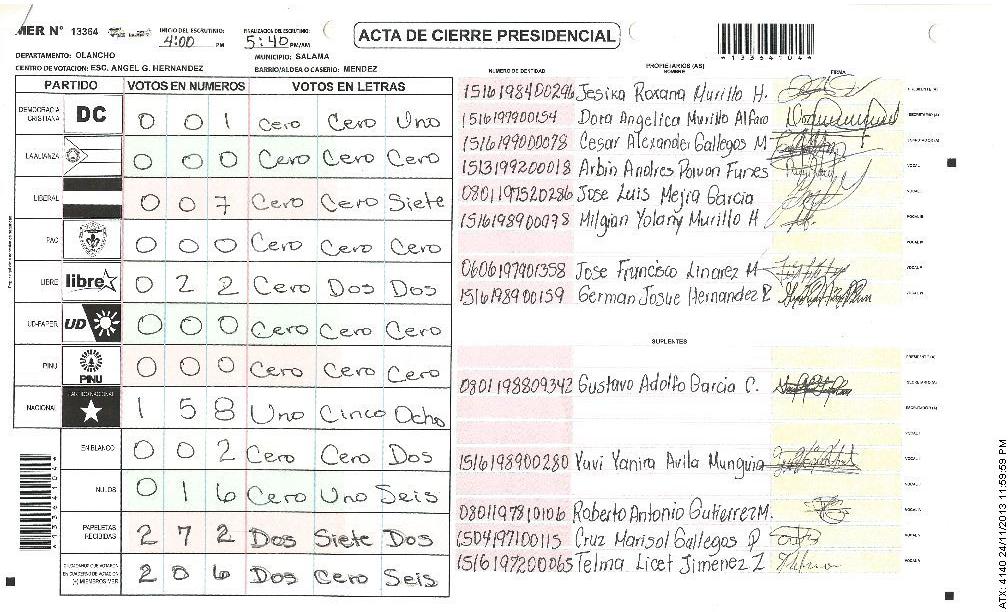 MER N° 13364
INICIO DEL ESCRUTINIO: 4:00 PM
FINALIZACION DEL ESCRUTINIO: 5:40 PM/AM
ACTA DE CIERRE PRESIDENCIAL
*133641044*
DEPARTAMENTO: OLANCHO
MUNICIPIO: SALAMA
CENTRO DE VOTACION: ESC. ANGEL G. HERNANDEZ
BARRIO/ALDEA O CASERIO: MENDEZ
PARTIDO VOTOS EN NUMEROS VOTOS EN LETRAS
DEMOCRACIA CRISTIANA DC 0 0 1 Cero Cero Uno
LA ALIANZA 0 0 0 Cero Cero Cero
LIBERAL 0 0 7 Cero Cero Siete
PAC 0 0 0 Cero Cero Cero
LIBRE libre 0 2 2 Cero Dos Dos
UD-FAPER UD 0 0 0 Cero Cero Cero
PINU PINU 0 0 0 Cero Cero Cero
NACIONAL PARTIDO NACIONAL 1 5 8 Uno Cinco Ocho
EN BLANCO 0 0 2 Cero Cero Dos
NULOS 0 1 6 Cero Uno Seis
PAPELETAS RECIBIDAS 2 7 2 Dos Siete Dos
CIUDADANOS QUE VOTARON EN CUADERNO DE VOTACION (+) MIEMBROS MER 2 0 6 Dos Cero Seis
PROPIETARIOS (AS)
NUMERO DE IDENTIDAD NOMBRE FIRMA
1516198400296 Jesika Roxana Murillo H. PRESIDENTE (A)
1516197900154 Dora Angelica Murillo Alfaro SECRETARIO (A)
1516199000078 Cesar Alexander Gallegos M ESCRUTADOR (A)
1513199200018 Arbin Andres Pavon Funes VOCAL I
0801197520286 Jose Luis Mejia Garcia VOCAL II
1516198900978 Milgian Yolany Murillo H VOCAL III
VOCAL IV
0606197901358 Jose Francisco Linarez M VOCAL V
1516198900159 German Josue Hernandez R. VOCAL VI
SUPLENTES
PRESIDENTE (A)
0801198809342 Gustavo Adolfo Garcia C. SECRETARIO (A)
ESCRUTADOR (A)
VOCAL I
1516198900280 Yuvi Yanira Avila Munguia VOCAL II
VOCAL III
0801197810106 Roberto Antonio Gutierrez M. VOCAL IV
1504197100115 Cruz Marisol Gallegos P VOCAL V
1516197200065 Telma Licet Jimenez Z VOCAL VI
*133641044*
ATX: 4140 24/11/2013 11:59:59 PM